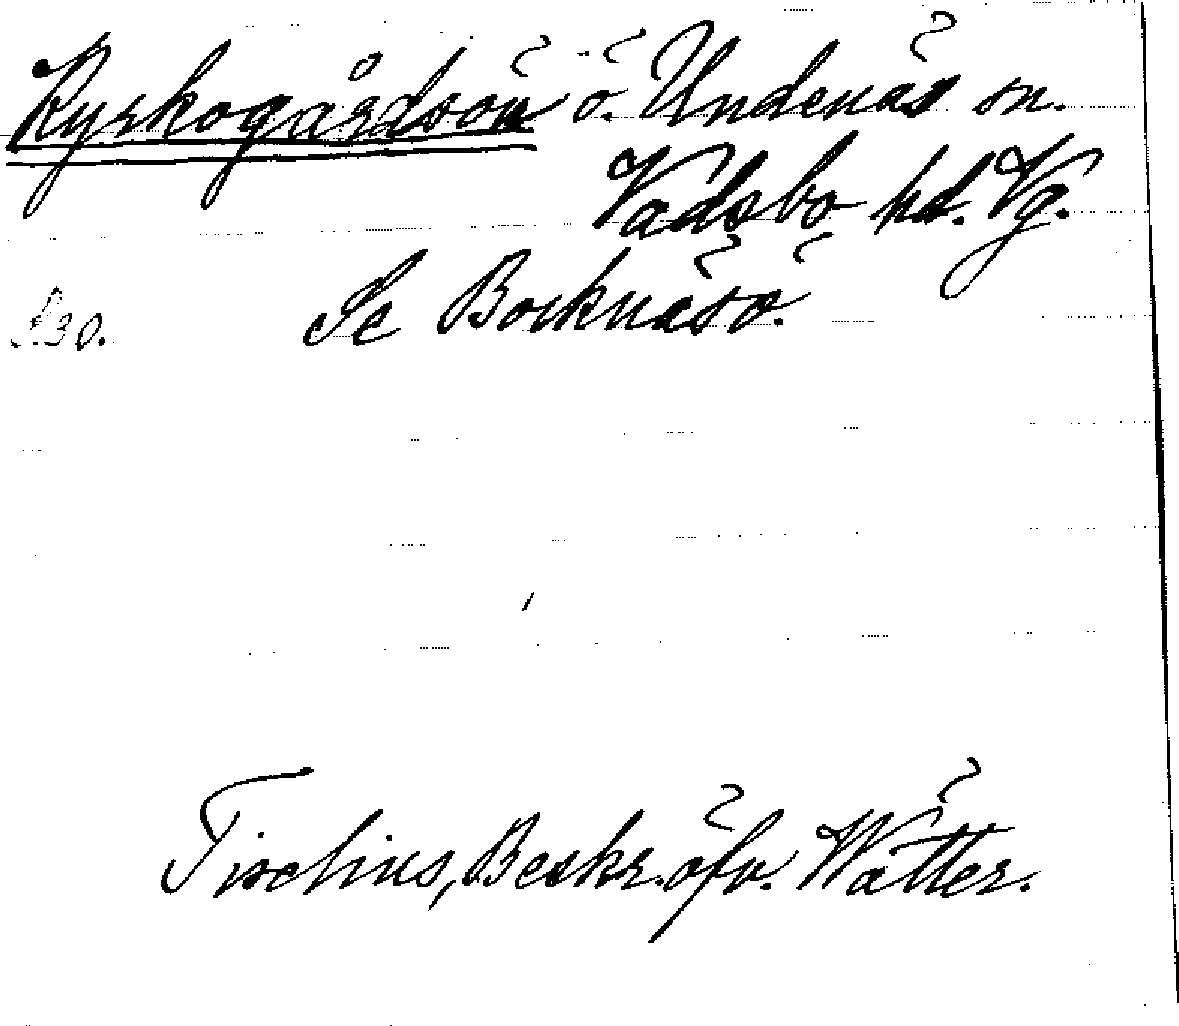 Kyrkogårdsön ö. Undenäs sn.
Vadsbo hd. Vg.
S.30. Se Bocknäsö.
Tischius, Beskr. öfv. Wätter.